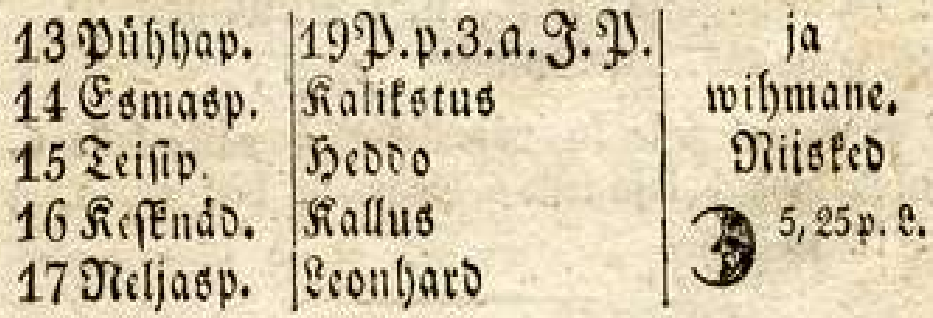 13 Pühhap. 19 P. p. 3. a. J. P. ja
14 Esmasp. Kalikstus wihmane.
15 Teisip. Heddo Niisked
16 Kesknäd. Kallus 5, 25 p. L.
17 Neljasp. Leonhard